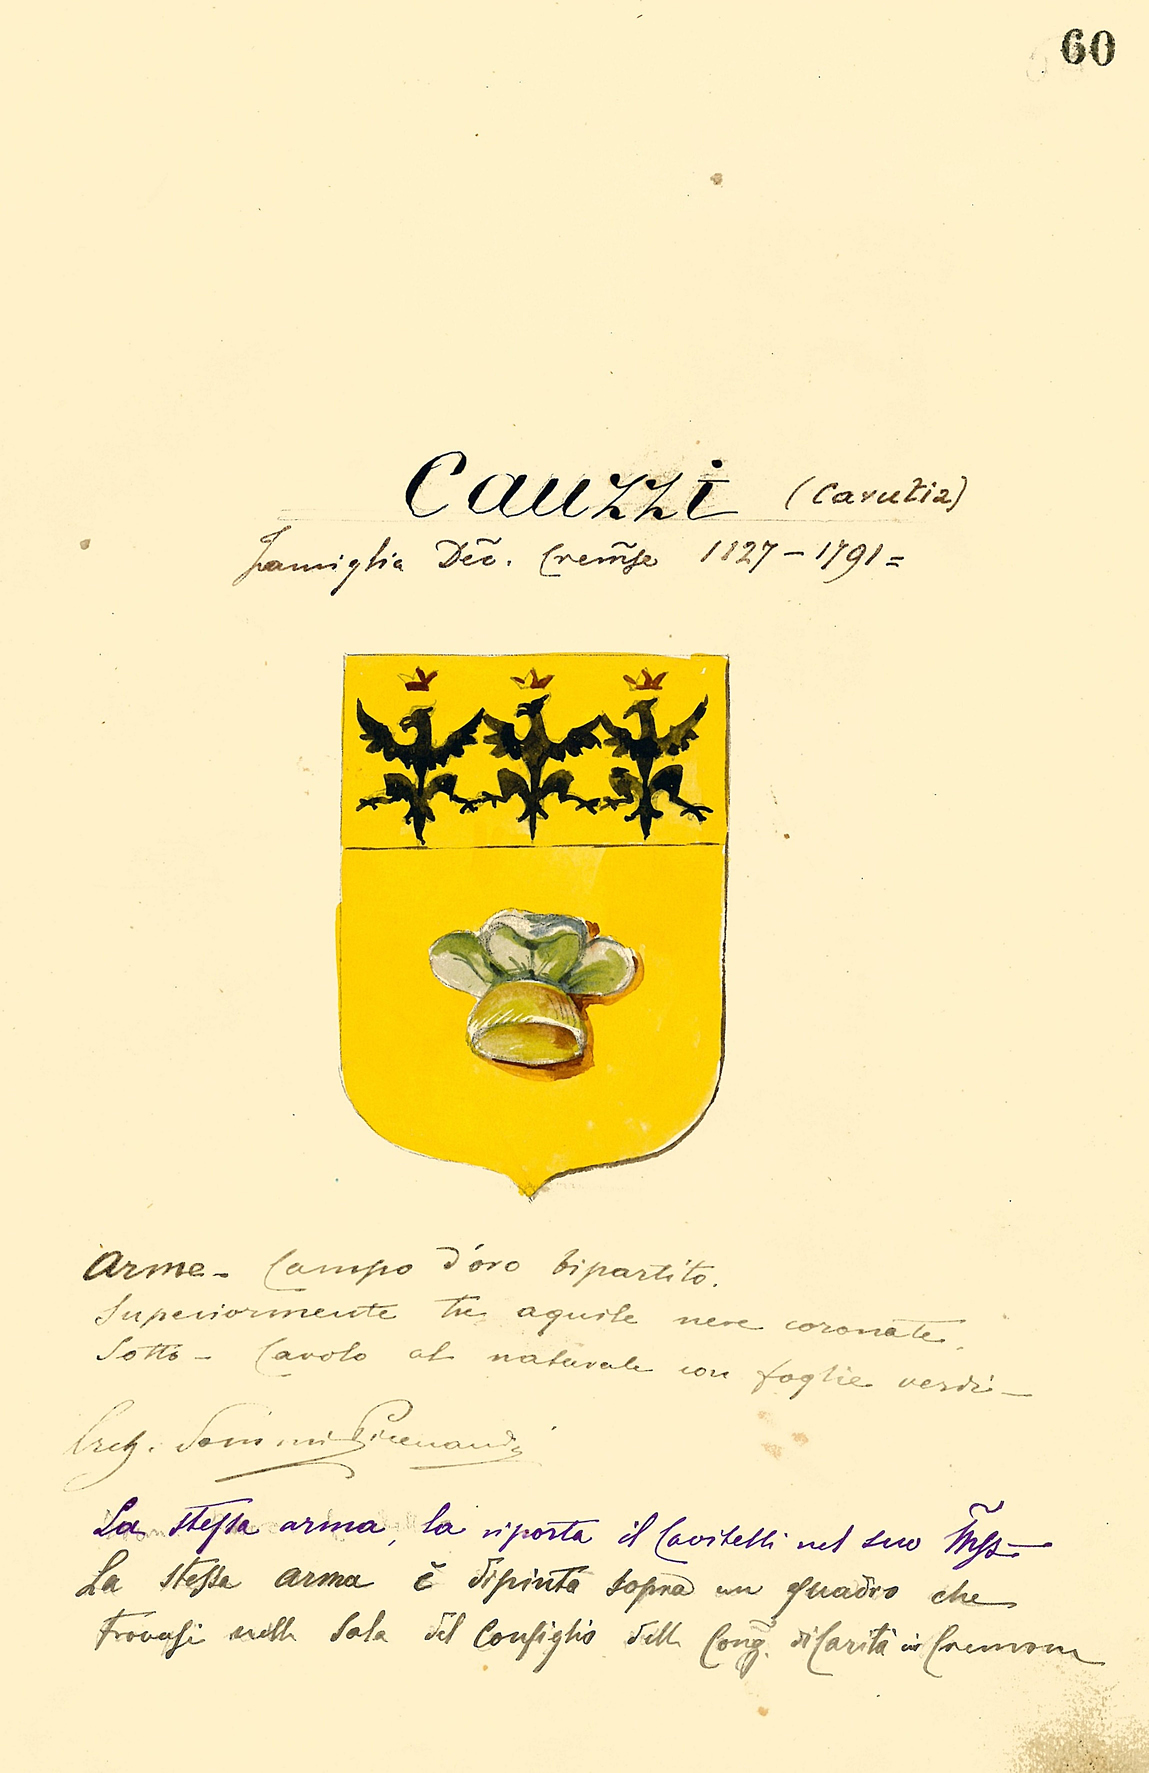 60
Cauzzi (Cavutia)
Famiglia Dec̃. Crem̃se 1127 – 1791 =
Arme – Campo d'oro bipartito.
Superiormente tre aquile nere coronate.
Sotto – Cavolo al naturale con foglie verdi –
Arch. Sommi Picenardi
La stessa arma, la riporta il Cavitelli nel suo M̃ss
La stessa arma è dipinta sopra un quadro che
trovasi nella Sala del Consiglio della Cong. di Carità in Cremona